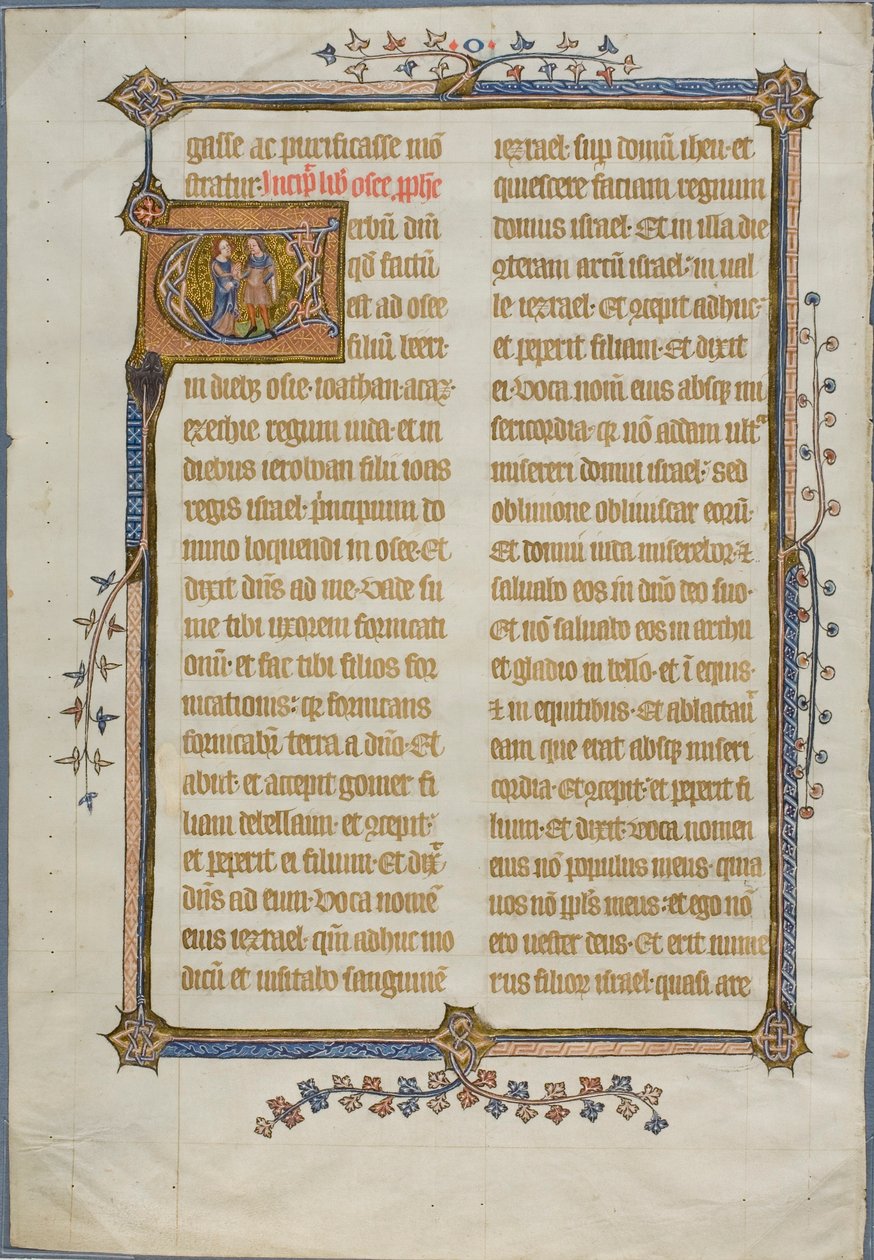 o
gasse ac purificasse mō
stratur. Incip̄ lib̄ osee ꝓph̄e
Verbū dm̄
qd̄ factū
est ad osee
filiū beeri·
in dieb⁊ osie· ioathan· acaz·
ezechie regum iuda· et in
diebus ieroboan filii ioas
regis israel· pͥncipium do
mino loquendi in osee· Et
dixit dn̄s ad me· Vade su
me tibi uxorem fornicati
onū· et fac tibi filios for
nicationis: qꝛ fornicans
fornicabr̄ terra a dn̄o· Et
abiit· et accepit gomer fi
liam debelaim· et ↄcepit·
et peperit ei filium· Et dixͣ
dn̄s ad eum· Voca nomē
eius iezrael· qm̄ adhuc mo
dicū et uisitabo sanguinē
iezrael· sup domū iheu· et
quiescere faciam regnum
domus israel· Et in illa die
ↄteram artū israel: in ual
le iezrael· Et ↄcepit adhuc·
et peperit filiam· Et dixit
ei· Voca nom̄ eius absqꝫ mi
sericordia· qꝛ nō addam ultͣ
misereri domui israel· sed
obliuione obliuiscar eorū·
Et domui iuda miserebor· ⁊
saluabo eos in dn̄o deo suo·
Et nō saluabo eos in archu
et gladio in bello· et ī equis·
⁊ in equitibus· Et ablactauͭ
eam que erat absqꝫ miseri
cordia· Et ↄcepit· et peperit fi
lium· Et dixit· Voca nomen
eius nō populus meus· quia
uos nō ppl̄s meus: et ego nō
ero uester deus· Et erit nume
rus filioꝝ israel· quasi are